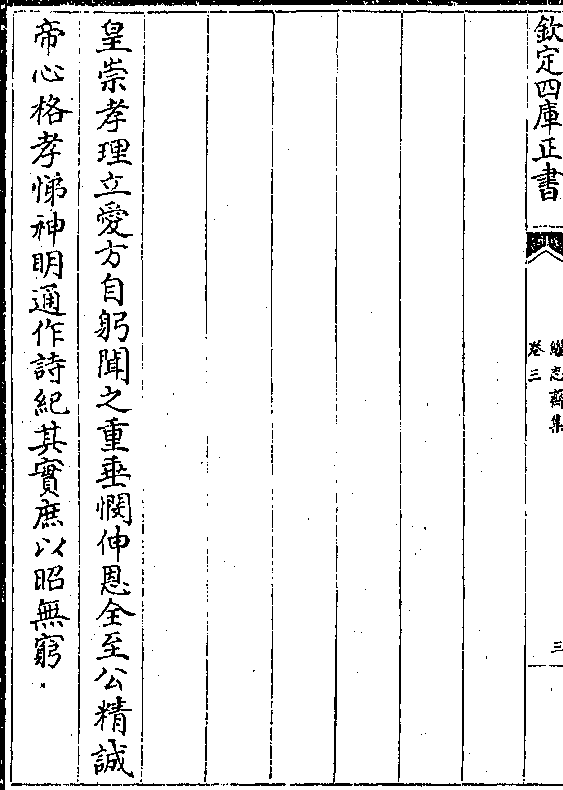 欽定四庫正書
繼志齋集
卷三
三
皇崇孝理立愛方自躬聞之重垂憫伸恩全至公精誠
帝心格孝悌神明通作詩紀其實庶以昭無窮